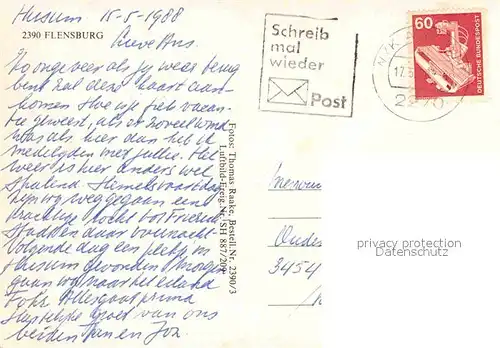 Husum 15-5-1988
2390 FLENSBURG
Lieve Ans.
Zo ongeveer als jy weer terug
bent zal deze kaart aan-
komen. Hoe is je fiets vacan-
tie geweest, als er zoveel wind
was als hier dan heb ik
medelyden met jullie. Het
weer is hier anders wel
stralend. Hemelvaartsdag
zyn wy weg gegaan een
prachtige tocht
Stad en daar overnacht
volgende dag een
Husum geworden Morgen
gaan wy naar het eiland
Föhr. Alles gaat prima
Hartelyke groet van ons
beiden en Jon
Fotos: Thomas Raake, Bestell.Nr. 2390/3
Luftbild-Freig.Nr. SH 887/209
Schreib
mal
wieder
Post
60
DEUTSCHE BUNDESPOST
17.5
2270
Oude
3454
privacy protection
Datenschutz